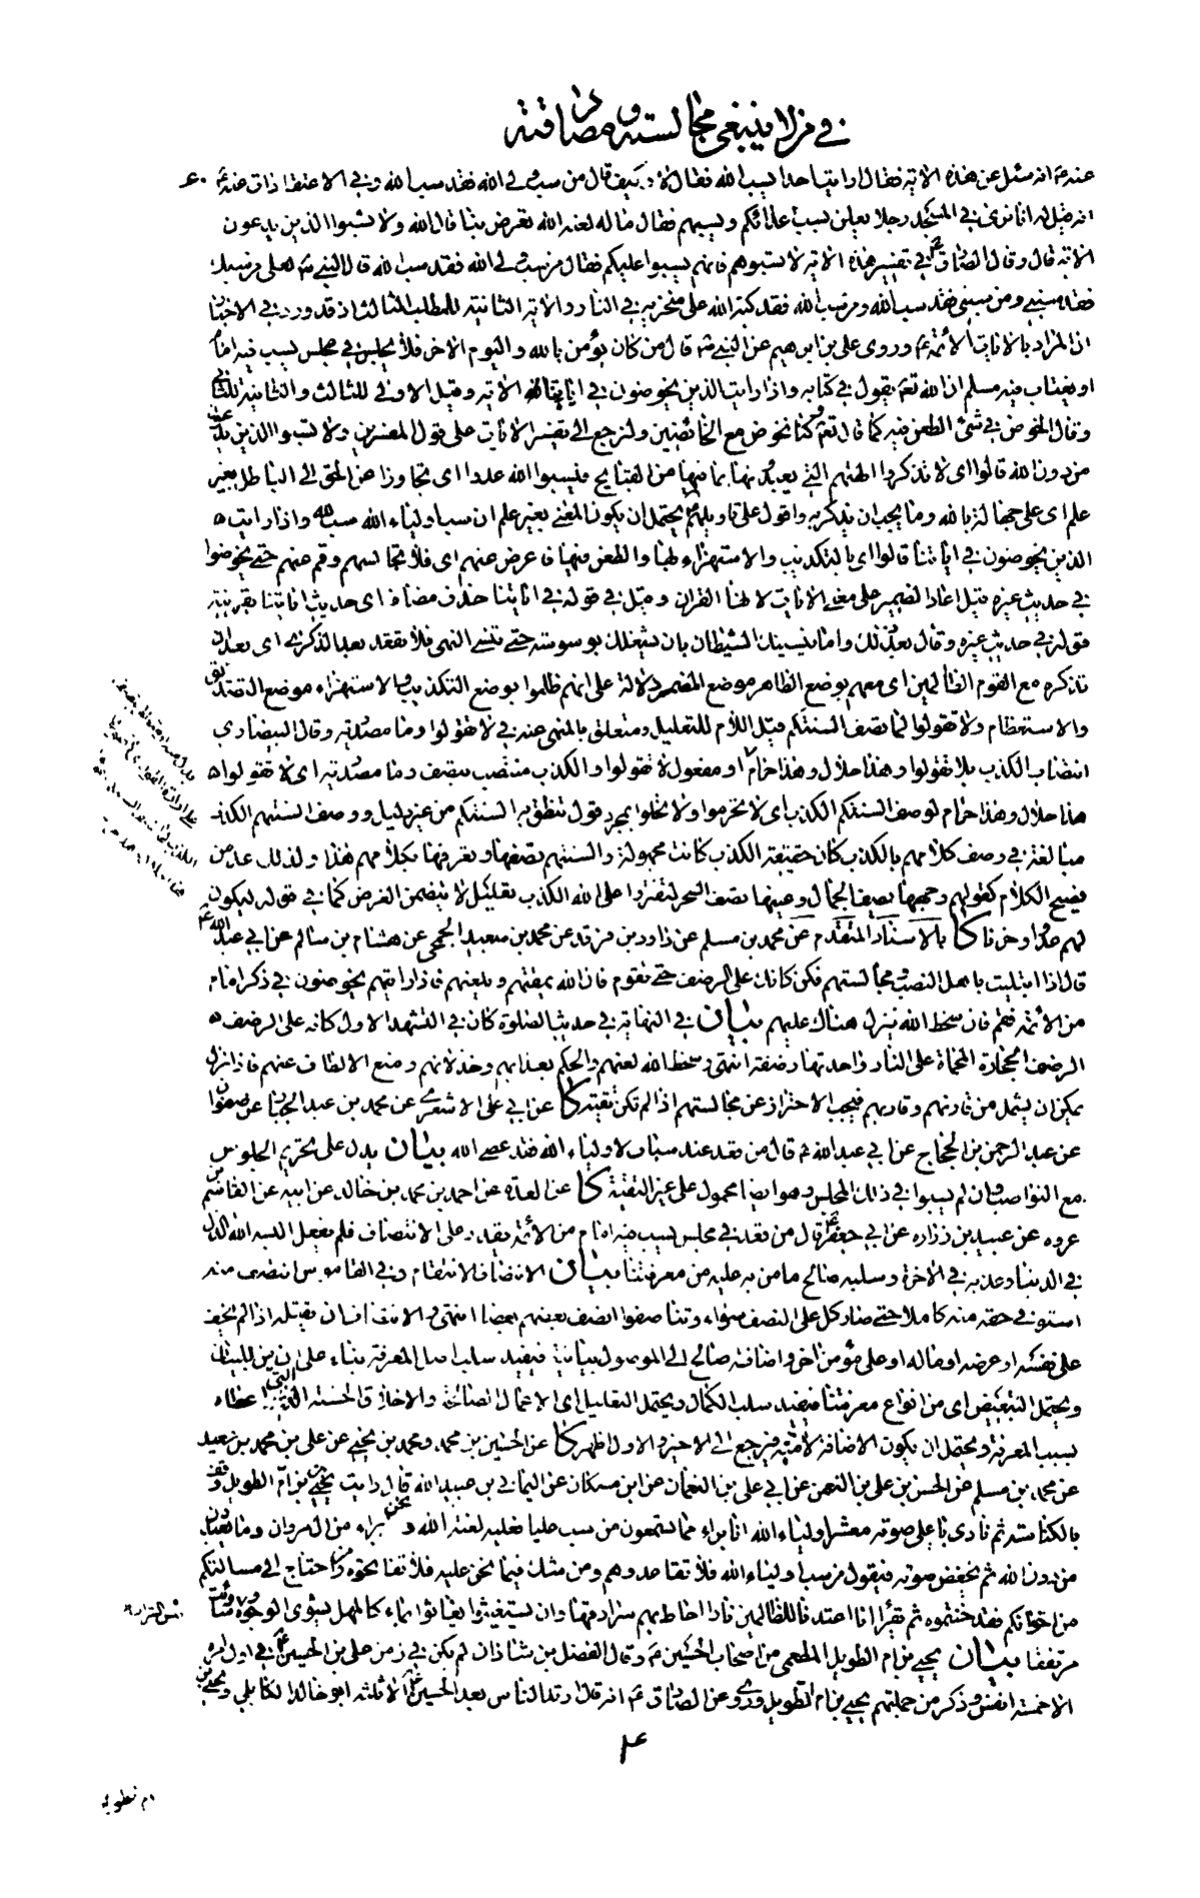 في من لا ينبغي مجالسته ومصادقته
عنه ع انه سئل عن هذه الاية فقال ارايت احدا يسب الله فقال لا وكيف قال من سب ولي الله فقد سب الله وفي الاعتقادات عنه ع
انه قيل له انا نرى في المسجد رجلا يعلن بسب اعدائكم ويسبهم فقال ما له لعنه الله تعرض بنا قال الله ولا تسبوا الذين يدعون
الاية قال وقال الصادق ع في تفسير هذه الاية لا تسبوهم فانهم يسبوا عليكم فقال من سب ولي الله فقد سب الله قال النبي ص لعلي من سبك
فقد سبني ومن سبني فقد سب الله ومن سب الله فقد كبه الله على منخريه في النار والاية الثانية للمطلب الثالث اذ قد ورد في الاخبار
ان المراد بالايات الأئمة ع وروى علي بن ابرهيم عن النبي ص قال من كان يؤمن بالله واليوم الاخر فلا يجلس في مجلس يسب فيه امام
او يغتاب فيه مسلم ان الله تع يقول في كتابه واذا رايت الذين يخوضون في اياتنا الاية وقيل الاولى للثالث والثانية للثاني
وقال الخوض في شئ الطعن فيه كما قال تع وكنا نخوض مع الخائضين ولنرجع الى تفسير الايات على قول المفسرين ولا تسبوا الذين يدعون
من دون الله قالوا اي لا تذكروا الهتهم التي يعبدونها بما فيها من القبايح فيسبوا الله عدوا اي تجاوزا عن الحق الى الباطل بغير
علم اي على جهالة بالله وما يجب ان يذكر به واقول على تاويلهم ع يحتمل ان يكون المعنى بغير علم ان سب اولياء الله سب الله واذا رايت
الذين يخوضون في اياتنا قالوا اي بالتكذيب والاستهزاء لها والطعن فيها فاعرض عنهم اي فلا تجالسهم وقم عنهم حتى يخوضوا
في حديث غيره قيل اعاد الضمير على معنى الايات لانها القران وقيل في قوله في اياتنا حذف مضاف اي حديث اياتنا بقرينة
قوله في حديث غيره وقال بعد ذلك واما ينسينك الشيطان بان يشغلك بوسوسته حتى تنسى النهي فلا تقعد بعد الذكرى اي بعد ان
تذكره مع القوم الظالمين اي معهم بوضع الظاهر موضع المضمر دلالة على انهم ظلموا بوضع التكذيب والاستهزاء موضع التصديق
والاستعظام ولا تقولوا لما تصف السنتكم قيل اللام للتعليل ومتعلق بالمنهي عنه في لا تقولوا وما مصدرية وقال البيضاوي
انتصاب الكذب بلا تقولوا وهذا حلال وهذا حرام او مفعول لا تقولوا والكذب منتصب بتصف وما مصدرية اي لا تقولوا
هذا حلال وهذا حرام لوصف السنتكم الكذب اي لا تحرموا ولا تحلوا بمجرد قول تنطق به السنتكم من غير دليل ووصف السنتهم الكذب
مبالغة في وصف كلامهم بالكذب كان حقيقة الكذب كانت مجهولة والسنتهم تصفها وتعرفها بكلامهم هذا ولذلك عد من
فصيح الكلام كقولهم وجهها يصف الجمال وعينها تصف السحر لتفتروا على الله الكذب تعليل لا يتضمن الغرض كما في قوله ليكون
لهم عدوا وحزنا كا بالاسناد المتقدم عن محمد بن مسلم عن داود بن فرقد عن محمد بن سعيد الجمحي عن هشام بن سالم عن ابي عبد الله ع
قال اذا ابتليت باهل النصب ومجالستهم فكن كانك على الرضف حتى تقوم فان الله يمقتهم ويلعنهم فاذا رايتهم يخوضون في ذكر امام
من الأئمة فقم فان سخط الله ينزل هناك عليهم بيان في النهاية في حديث الصلوة كان في التشهد الاول كانه على الرضف
الرضف الحجارة المحماة على النار واحدتها رضفة انتهى وسخط الله لعنهم والحكم بعذابهم وخذلانهم ومنع الالطاف عنهم فاذا نزل
يمكن ان يشمل من قارنهم وقاربهم فيجب الاحتراز عن مجالستهم اذا لم تكن تقية كا عن ابي علي الاشعري عن محمد بن عبد الجبار عن صفوان
عن عبد الرحمن بن الحجاج عن ابي عبد الله ع قال من قعد عند سباب لاولياء الله فقد عصى الله بيان يدل على تحريم الجلوس
مع النواصب وان لم يسبوا في ذلك المجلس وهو ايضا محمول على غير التقية كا عن العدة عن احمد بن محمد بن خالد عن ابيه عن القاسم بن
عروه عن عبيد بن زراره عن ابي جعفر ع قال من قعد في مجلس يسب فيه امام من الأئمة يقدر على الانتصاف فلم يفعل البسه الله الذل
في الدنيا وعذبه في الاخرة وسلبه صالح ما من به عليه من معرفتنا بيان الانتصاف الانتقام وفي القاموس انتصف منه
استوفى حقه منه كاملا حتى صار كل على النصف سواء وتناصفوا انصف بعضهم بعضا انتهى والانتصاف ان يقتله اذا لم يخف
على نفسه او عرضه او ماله او على مؤمن اخر واضافة صالح الى الموصول بيانية فيفيد سلب اصل المعرفة بناء على ان من للبيان
ويحتمل التبعيض اي من انواع معرفتنا فيفيد سلب الكمال ويحتمل التعليل اي الاعمال الصالحة والاخلاق الحسنة التي اعطاه
بسبب المعرفة ويحتمل ان يكون الاضافة لامية فيرجع الى الاخير والاول اظهر كا عن الحسين بن محمد ومحمد بن يحيى عن علي بن محمد بن سعيد
عن محمد بن مسلم عن الحسن بن علي بن النعمن عن ابي علي بن النعمان عن ابن مسكان عن اليماني بن عبيد الله قال رايت يحيى بن ام الطويل وقف
بالكناسة ثم نادى باعلى صوته معشر اولياء الله انا براء مما تسمعون من سب عليا فعليه لعنة الله ونحن براء من ال مروان وما يعبدون
من دون الله ثم يخفض صوته فيقول من سب اولياء الله فلا تقاعدوهم ومن شك فيما نحن عليه فلا تفاتحوه ومن احتاج الى مسالتكم
من اخوانكم فقد خنتموه ثم يقرأ انا اعتدنا للظالمين نارا احاط بهم سرادقها وان يستغيثوا يغاثوا بماء كالمهل يشوى الوجوه وساءت
بئس الشراب
مرتفقا بيان يحيى بن ام الطويل المطعمي من اصحاب الحسين ع وقال الفضل بن شاذان لم يكن في زمن علي بن الحسين ع في اول امره
الا خمسة انفس وذكر من جملتهم يحيى بن ام الطويل وروي عن الصادق ع انه قال ارتد الناس بعد الحسين ع الا ثلثه ابو خالد الكابلي ويحيى بن
ام طويله